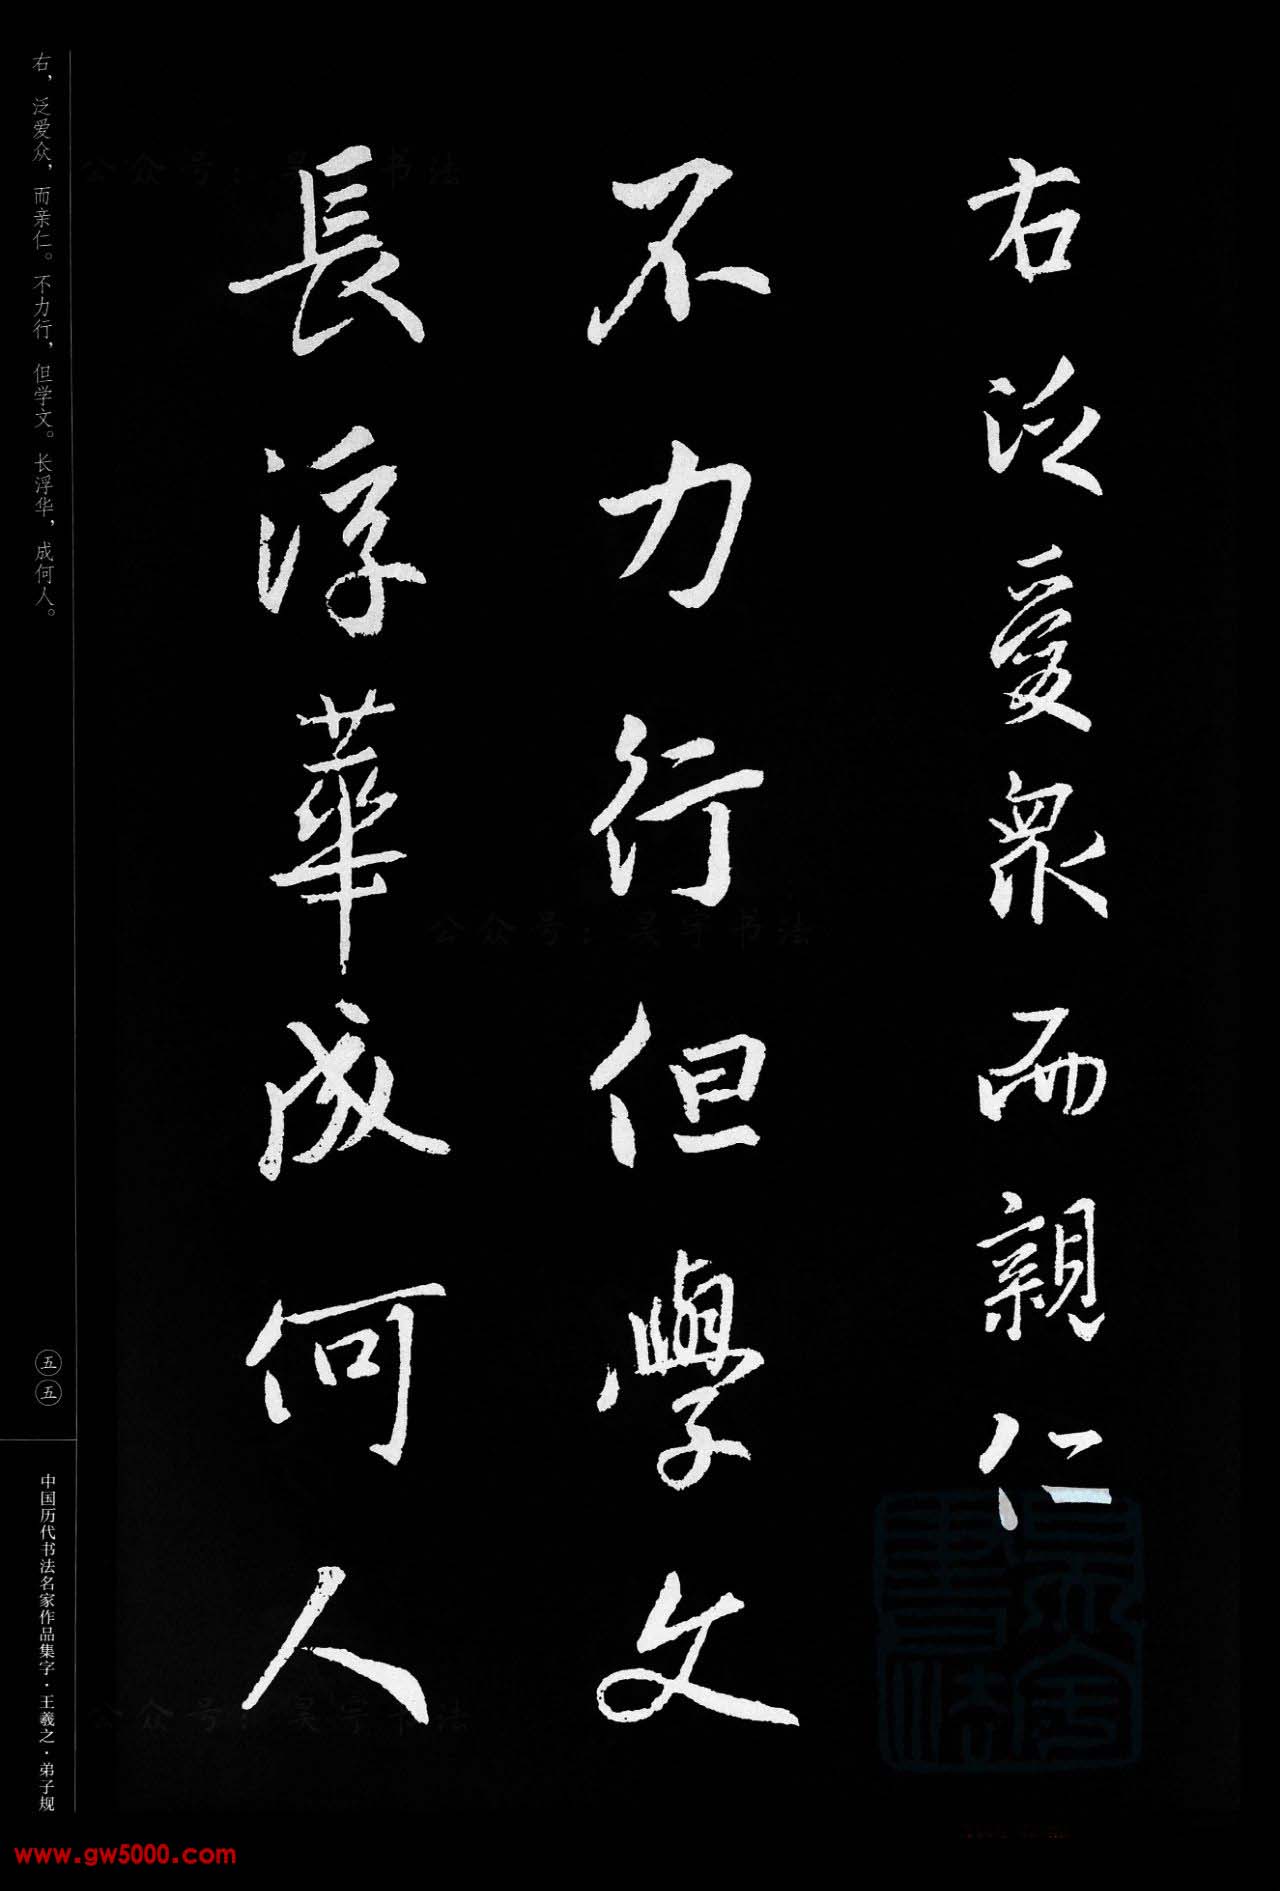 右泛愛衆而親仁
不力行但學文
長浮華成何人
右，泛爱众，而亲仁。不力行，但学文。长浮华，成何人。
五五
中国历代书法名家作品集字·王羲之·弟子规
公众号：昊宇书法
公众号：昊宇书法
公众号：昊宇书法
昊宇書法
www.gw5000.com